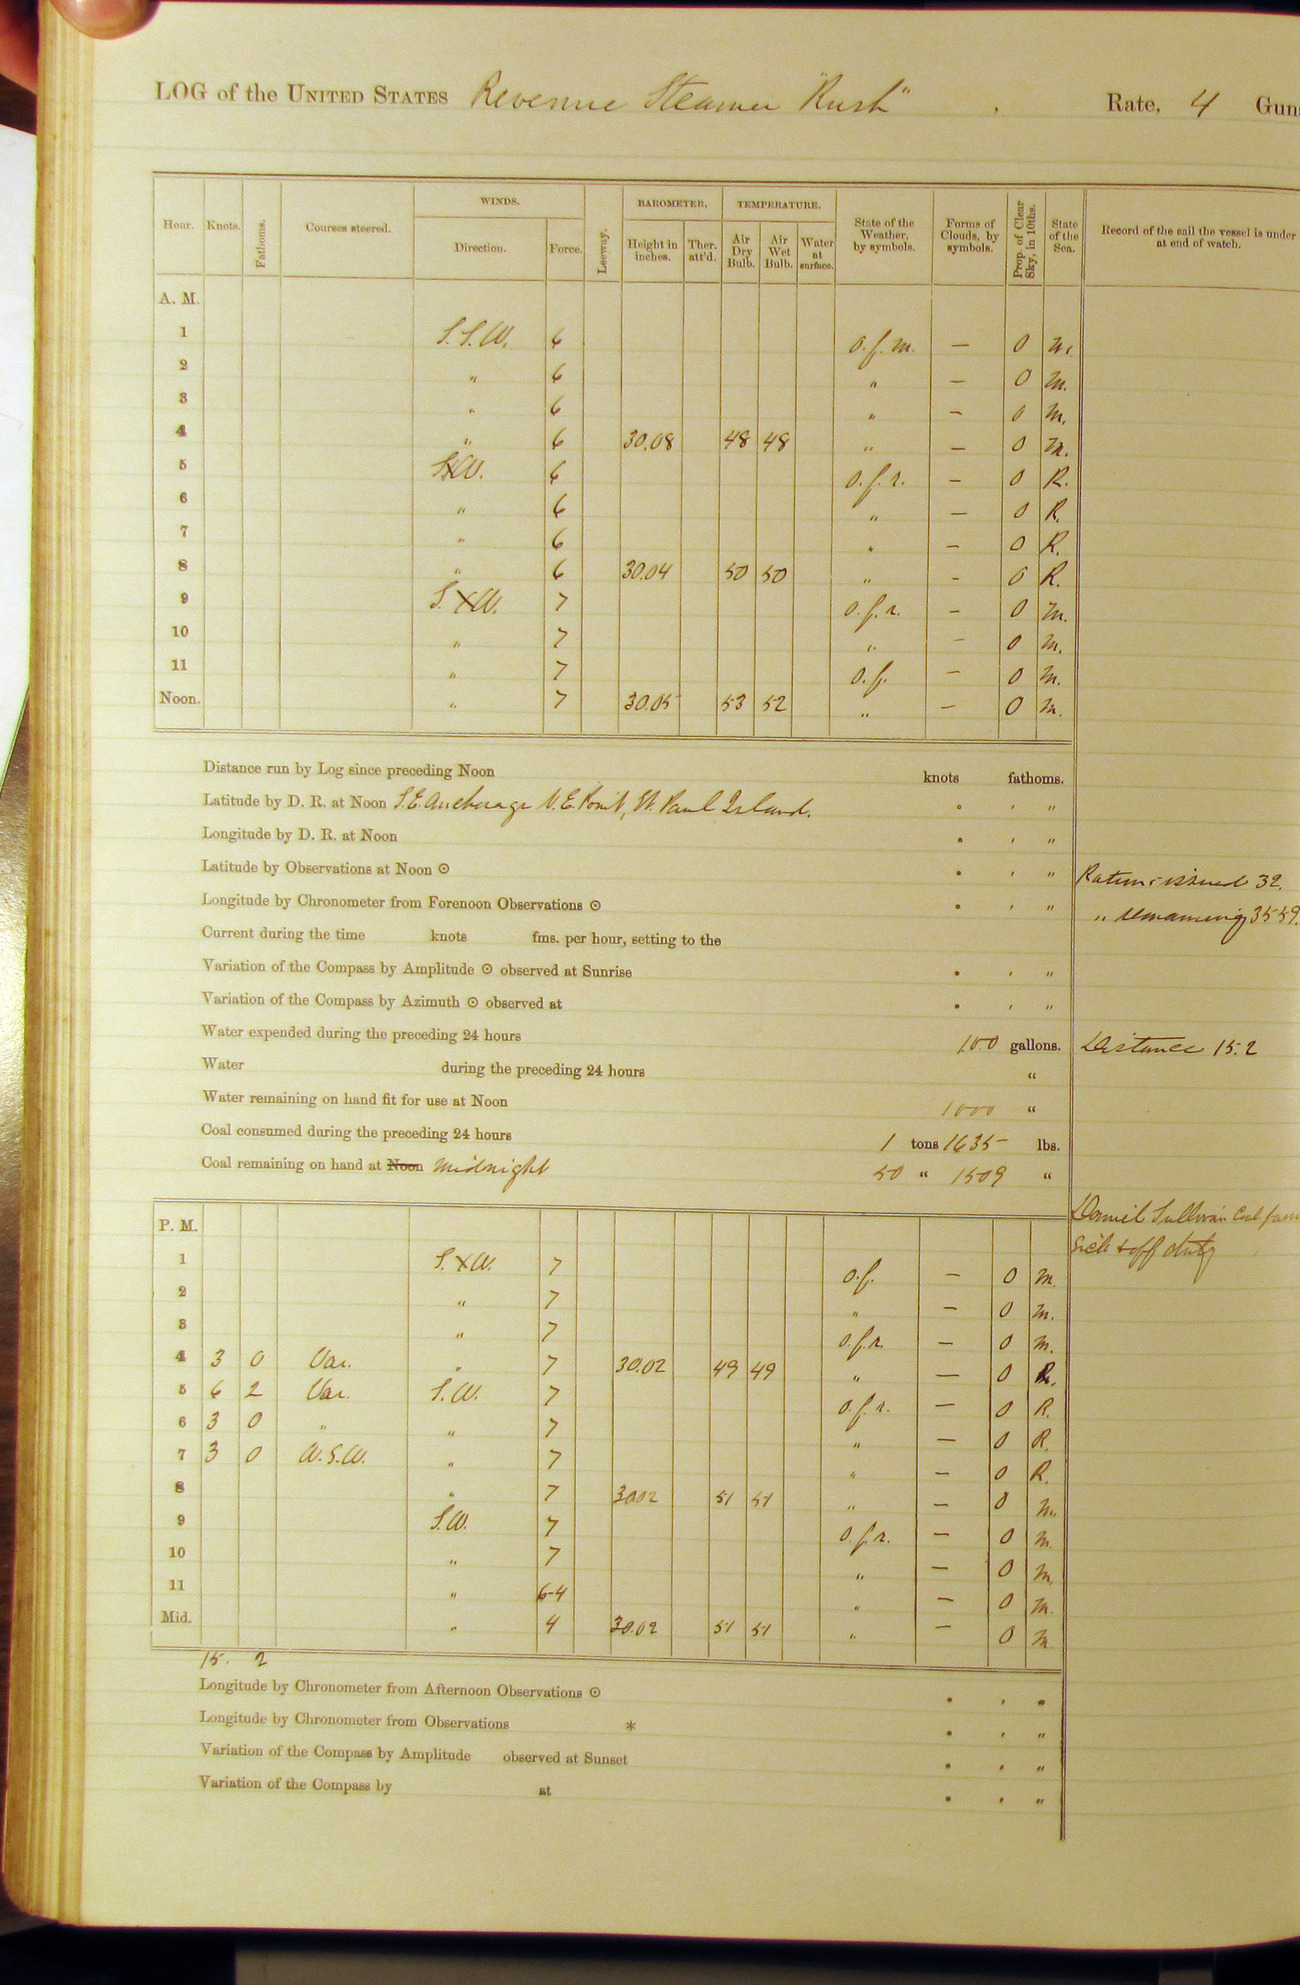 LOG of the UNITED STATES Revenue Steamer "Rush" , Rate, 4 Guns
Hour. Knots. Fathoms. Courses steered. WINDS. Direction. Force. Leeway. BAROMETER. Height in inches. Ther. att'd. TEMPERATURE. Air Dry Bulb. Air Wet Bulb. Water at surface. State of the Weather, by symbols. Forms of Clouds, by symbols. Prop. of Clear Sky, in 10ths. State of the Sea. Record of the sail the vessel is under at end of watch.
A. M.
1 S.S.W. 6 o.f.m. — 0 M.
2 " 6 " — 0 M.
3 " 6 " — 0 M.
4 " 6 30.08 48 48 " — 0 M.
5 SxW. 6 o.f.r. — 0 R.
6 " 6 " — 0 R.
7 " 6 " — 0 R.
8 " 6 30.04 50 50 " — 0 R.
9 S.xW. 7 o.f.r. — 0 M.
10 " 7 " — 0 M.
11 " 7 o.f. — 0 M.
Noon. " 7 30.05 53 52 " — 0 M.
Distance run by Log since preceding Noon knots fathoms.
Latitude by D. R. at Noon S.E. Anchorage N.E. Point, St. Paul Island. ° ' "
Longitude by D. R. at Noon ° ' "
Latitude by Observations at Noon ⊙ ° ' " Rations issued 32.
Longitude by Chronometer from Forenoon Observations ⊙ ° ' " " remaining 3559.
Current during the time knots fms. per hour, setting to the
Variation of the Compass by Amplitude ⊙ observed at Sunrise ° ' "
Variation of the Compass by Azimuth ⊙ observed at ° ' "
Water expended during the preceding 24 hours 100 gallons. Distance 15.2
Water during the preceding 24 hours "
Water remaining on hand fit for use at Noon 1000 "
Coal consumed during the preceding 24 hours 1 tons 1635 lbs.
Coal remaining on hand at Noon Midnight 50 " 1509 "
Daniel Sullivan Coal
sick & off duty
P. M.
1 S.xW. 7 o.f. — 0 M.
2 " 7 " — 0 M.
3 " 7 o.f.r. — 0 M.
4 3 0 Var. " 7 30.02 49 49 " — 0 R.
5 6 2 Var. S.W. 7 o.f.r. — 0 R.
6 3 0 " " 7 " — 0 R.
7 3 0 W.S.W. " 7 " — 0 R.
8 " 7 30.02 51 51 " — 0 M.
9 S.W. 7 o.f.r. — 0 M.
10 " 7 " — 0 M.
11 " 6-4 " — 0 M.
Mid. " 4 30.02 51 51 " — 0 M
15. 2
Longitude by Chronometer from Afternoon Observations ⊙ ° ' "
Longitude by Chronometer from Observations * ° ' "
Variation of the Compass by Amplitude observed at Sunset ° ' "
Variation of the Compass by at ° ' "